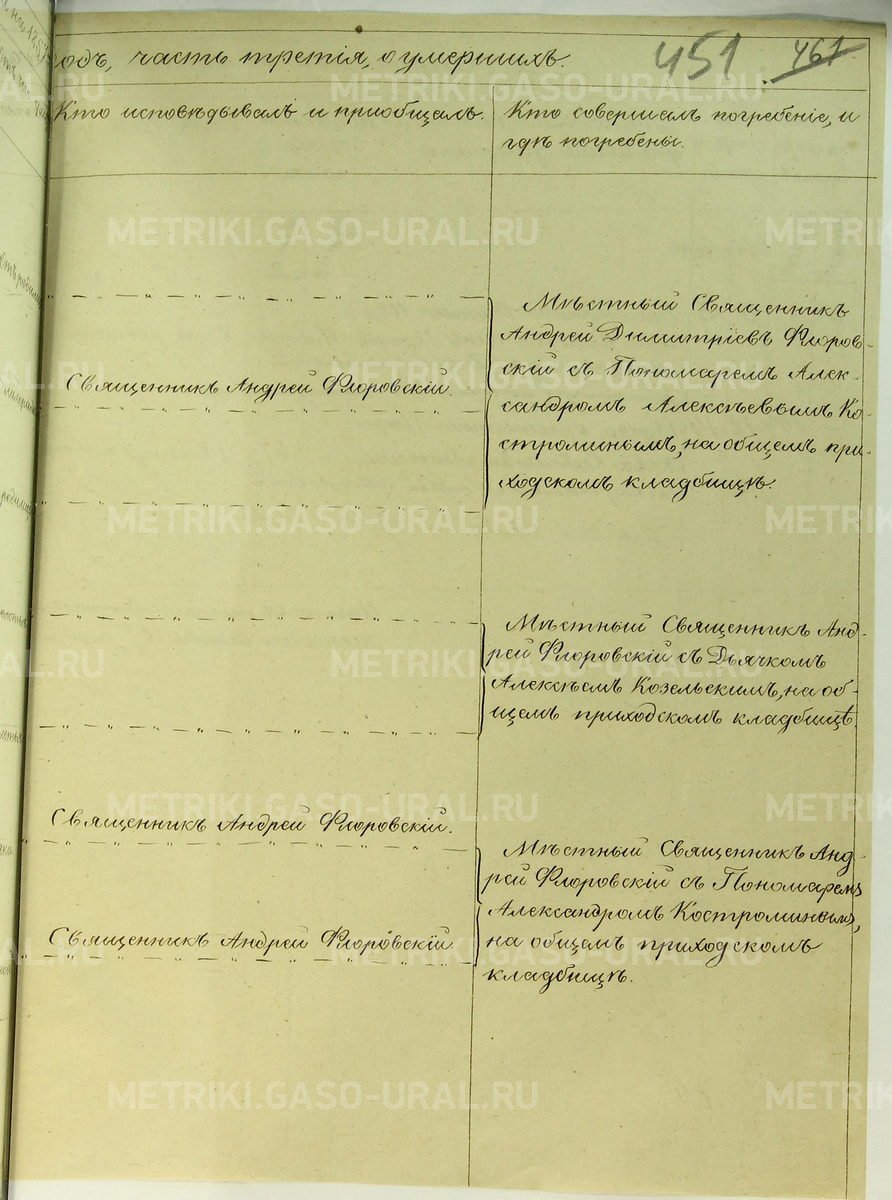 одъ, часть третія, о умершихъ.
451 467
Кто исповѣдывалъ и приобщалъ.
Кто совершалъ погребеніе, и
гдѣ погребены.
Священникъ Андрей Флоровскій.
Мѣстный Священникъ
Андрей Димитріевъ Флоров-
скій съ Пономаремъ Алек-
сандромъ Алексѣевымъ Ко-
строминымъ, на общемъ при-
ходскомъ кладбищѣ.
Мѣстный Священникъ Анд-
рей Флоровскій съ Дьячкомъ
Алексѣемъ Козельскимъ, на об-
щемъ приходскомъ кладбищѣ.
Священникъ Андрей Флоровскій.
Священникъ Андрей Флоровскій
Мѣстный Священникъ Анд
рей Флоровскій съ Пономаремъ
Александромъ Костроминымъ,
на общемъ приходскомъ
кладбищѣ.
METRIKI.GASO-URAL.RU